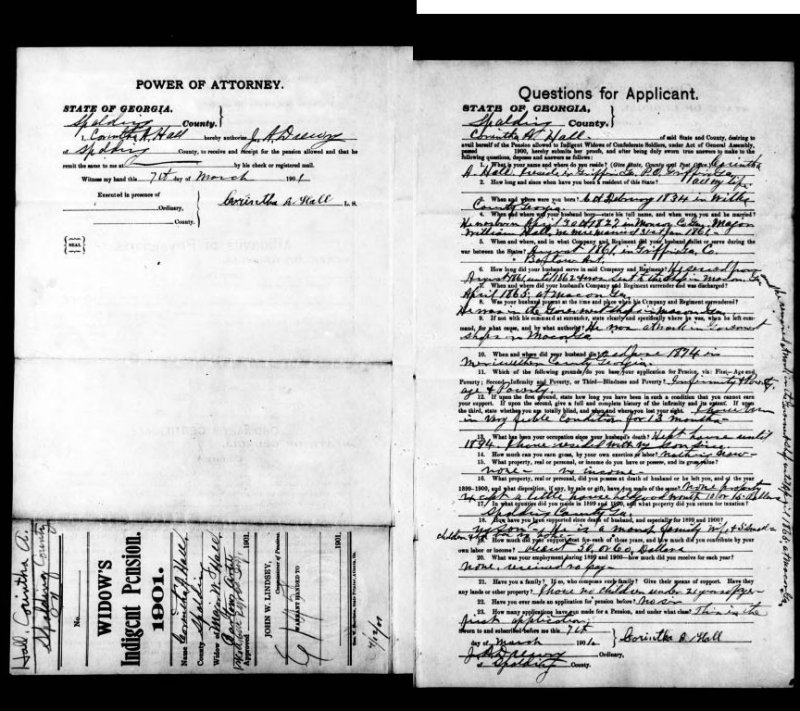 POWER OF ATTORNEY.
STATE OF GEORGIA,
Spalding County.
I, Corintha A. Hall hereby authorize J. A. Drewry
of Spalding County, to receive and receipt for the pension allowed and that he
remit the same to me at by his check or registered mail.
Witness my hand this 7th day of March 1901
Executed in presence of
Corintha A. Hall L. S.
Ordinary,
County.
SEAL
Hall Corintha A.
Spalding County
No.
WIDOW'S
Indigent Pension.
1901.
Name Corintha A. Hall
County Spalding
Widow of Wm. Hall
Approved 1901.
JOHN W. LINDSEY,
Commissioner of Pensions.
WARRANT HANDED TO
1901.
Questions for Applicant.
STATE OF GEORGIA,
Spalding County.
Corintha A. Hall of said State and County, desiring to
avail herself of the Pension allowed to Indigent Widows of Confederate Soldiers, under Act of General Assembly,
passed 1900, hereby submits her proofs, and after being duly sworn true answers to make to the
following questions, deposes and answers as follows:
1. What is your name and where do you reside? (Give State, County and Post Corintha
A. Hall. reside in Griffin Ga. P.O. Griffin Ga.
2. How long and since when have you been a resident of this State? all my life
3. When and where were you born? 1834 in Wilkes
County Georgia
4. When and where was your husband born—state his full name, and when were you and he married?
He was born April 1827 in Monroe Co Ga.
William Hall, we were married in 1861
5. When and where, and in what Company and Regiment did your husband enlist or serve during the
war between the States? August 1861, in Griffin Ga, Co.
6. How long did your husband serve in said Company and Regiment? He served from
August 1861 until 1862 in Macon Ga
7. When and where did your husband's Company and Regiment surrender and was discharged?
April 1865. at Macon Ga
8. Was your husband present at the time and place when his Company and Regiment surrendered?
He was in the Government shops in Macon Ga
9. If not with his command at surrender, state clearly and specifically where he was, when he left command,
for what cause, and by what authority? He was at work in Government
shops in Macon Ga
10. When and where did your husband die? June 1874 in
Meriwether County Georgia
11. Which of the following grounds do you base your application for Pension, viz: First—Age and
Poverty; Second—Infirmity and Poverty, or Third—Blindness and Poverty? Infirmity & Poverty,
age & Poverty.
12. If upon the first ground, state how long you have been in such a condition that you cannot earn
your support. If upon the second, give a full and complete history of the infirmity and its extent. If upon
the third, state whether you are totally blind, and when and where you lost your sight. I have been
in very feeble condition for 13 months
13. What has been your occupation since your husband's death? Kept house until
I have resided with my son since.
14. How much can you earn gross, by your own exertion or labor? nothing now
15. What property, real or personal, or income do you have or possess, and its gross value?
none - no income
16. What property, real or personal, did you possess at death of husband or he left you, and of the year
1899-1900, and what disposition, if any, by sale or gift, have you made of the same? None
except a little household goods worth 10 or 15 Dollars
17. In what counties did you reside in 1899 and 1900, and what property did you return for taxation?
Spalding County Ga.
18. How have you supported since death of husband, and especially for 1899 and 1900?
19. How much did your support cost for each of those years, and how much did you contribute by your
own labor or income? about 50, or 60, Dollars
20. What was your employment during 1899 and 1900—how much did you receive for each year?
None, received no pay
21. Have you a family? If so, who compose such family? Give their means of support. Have they
any lands or other property? I have no children under
22. Have you ever made an application for pension before? No sir
23. How many applications have you made for a Pension, and under what class? This is the
first application.
Sworn to and subscribed before me this 7th
day of March 1901. Corintha A. Hall
J. A. Drewry Ordinary,
of Spalding County.